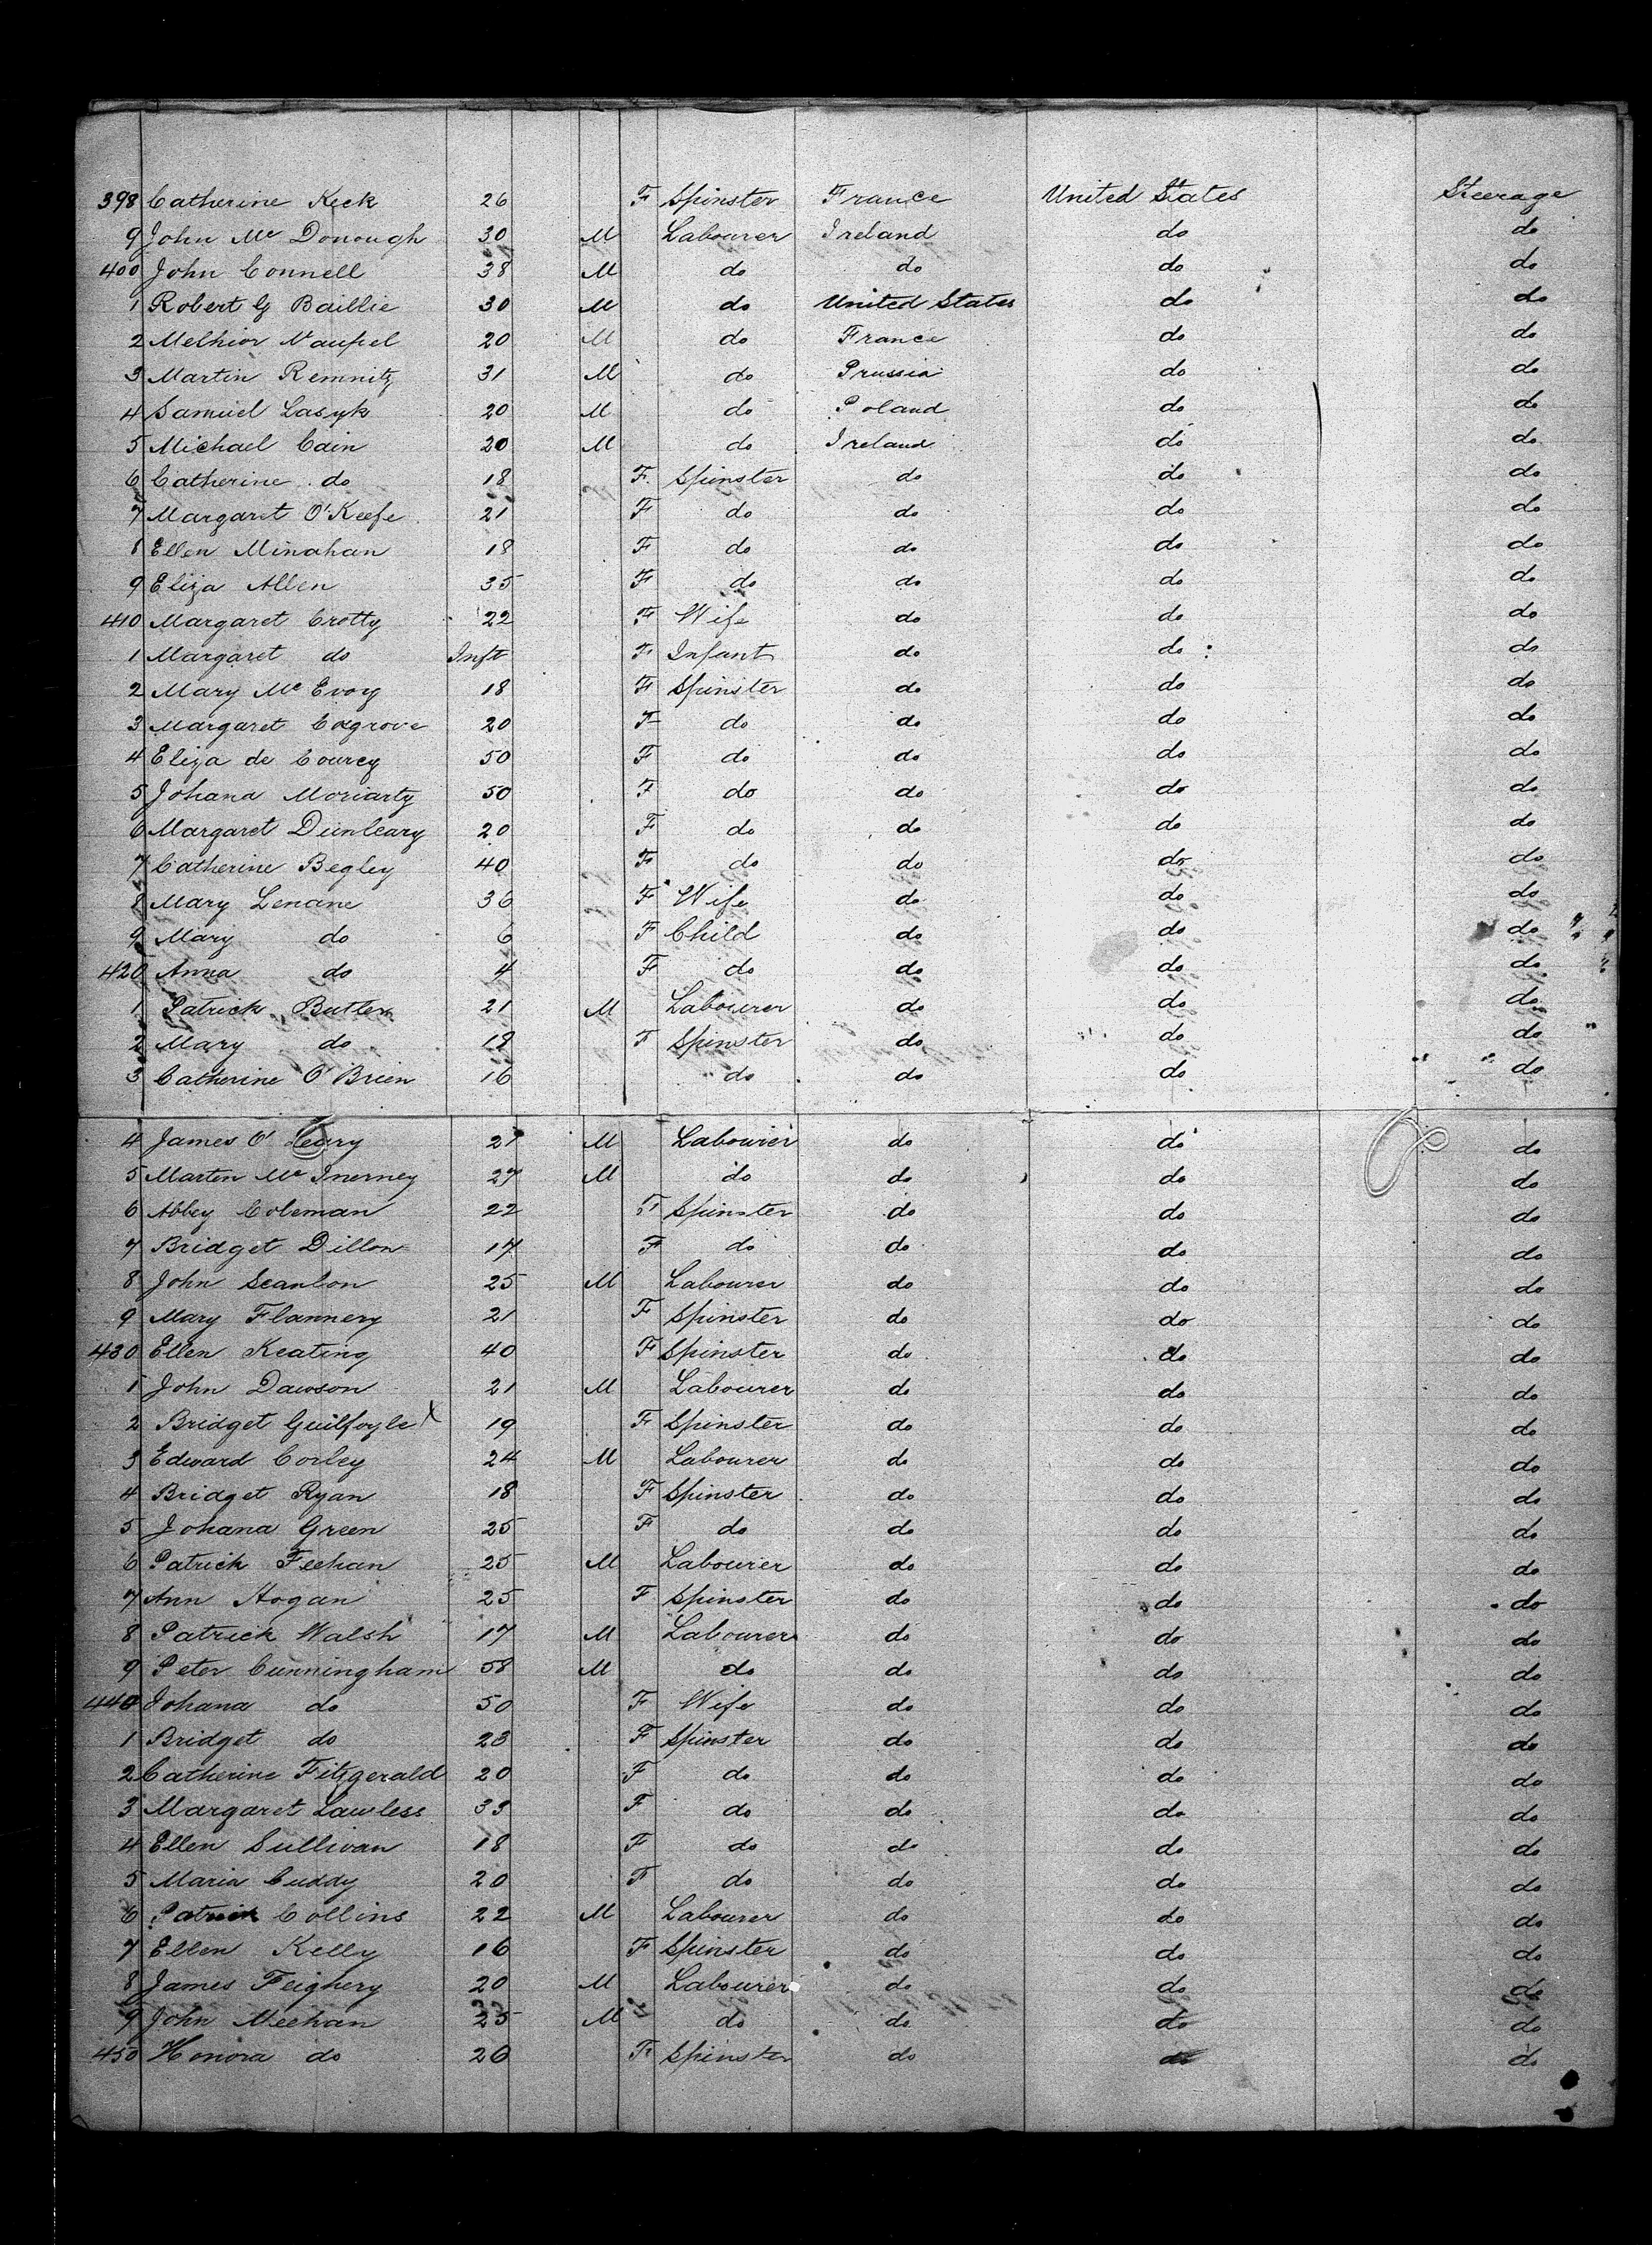 398 Catherine Keck 26 F Spinster France United States Steerage
9 John Mc Donough 30 M Labourer Ireland do do
400 John Connell 38 M do do do do
1 Robert G Baillie 30 M do United States do do
2 Melhior 20 M do France do do
3 Martin Remnitz 31 M do Prussia do do
4 Samuel Lasyk 20 M do Poland do do
5 Michael Cain 20 M do Ireland do do
6 Catherine do 18 F Spinster do do do
7 Margaret O'Keefe 21 F do do do do
8 Ellen Minahan 18 F do do do do
9 Eliza Allen 35 F do do do do
410 Margaret Crotty 22 F Wife do do do
1 Margaret do Inft F Infant do do do
2 Mary Mc Evoy 18 F Spinster do do do
3 Margaret Cosgrove 20 F do do do do
4 Eliza de Courcy 50 F do do do do
5 Johana Moriarty 50 F do do do do
6 Margaret Dunleary 20 F do do do do
7 Catherine Begley 40 F do do do do
8 Mary Lenane 36 F Wife do do do
9 Mary do 6 F Child do do do
420 Anna do 4 F do do do do
1 Patrick Butler 21 M Labourer do do do
2 Mary do 18 F Spinster do do do
3 Catherine O'Brien 16 do do do do
4 James O'Leary 21 M Labourer do do do
5 Marten Mc Inerney 27 M do do do do
6 Abbey Coleman 22 F Spinster do do do
7 Bridget Dillon 17 F do do do do
8 John Scanlon 25 M Labourer do do do
9 Mary Flannery 21 F Spinster do do do
430 Ellen Keating 40 F Spinster do do do
1 John Dawson 21 M Labourer do do do
2 Bridget Guilfoyle X 19 F Spinster do do do
3 Edward Corley 24 M Labourer do do do
4 Bridget Ryan 18 F Spinster do do do
5 Johana Green 25 F do do do do
6 Patrick Feehan 25 M Labourer do do do
7 Ann Hogan 25 F Spinster do do do
8 Patrick Walsh 17 M Labourer do do do
9 Peter Cunningham 58 M do do do do
440 Johana do 50 F Wife do do do
1 Bridget do 23 F Spinster do do do
2 Catherine Fitzgerald 20 F do do do do
3 Margaret Lawless 33 F do do do do
4 Ellen Sullivan 18 F do do do do
5 Maria Cuddy 20 F do do do do
6 Patrick Collins 22 M Labourer do do do
7 Ellen Kelly 16 F Spinster do do do
8 James Feighery 20 M Labourer do do do
9 John Meehan 25 M do do do do
450 Honora do 20 F Spinster do do do